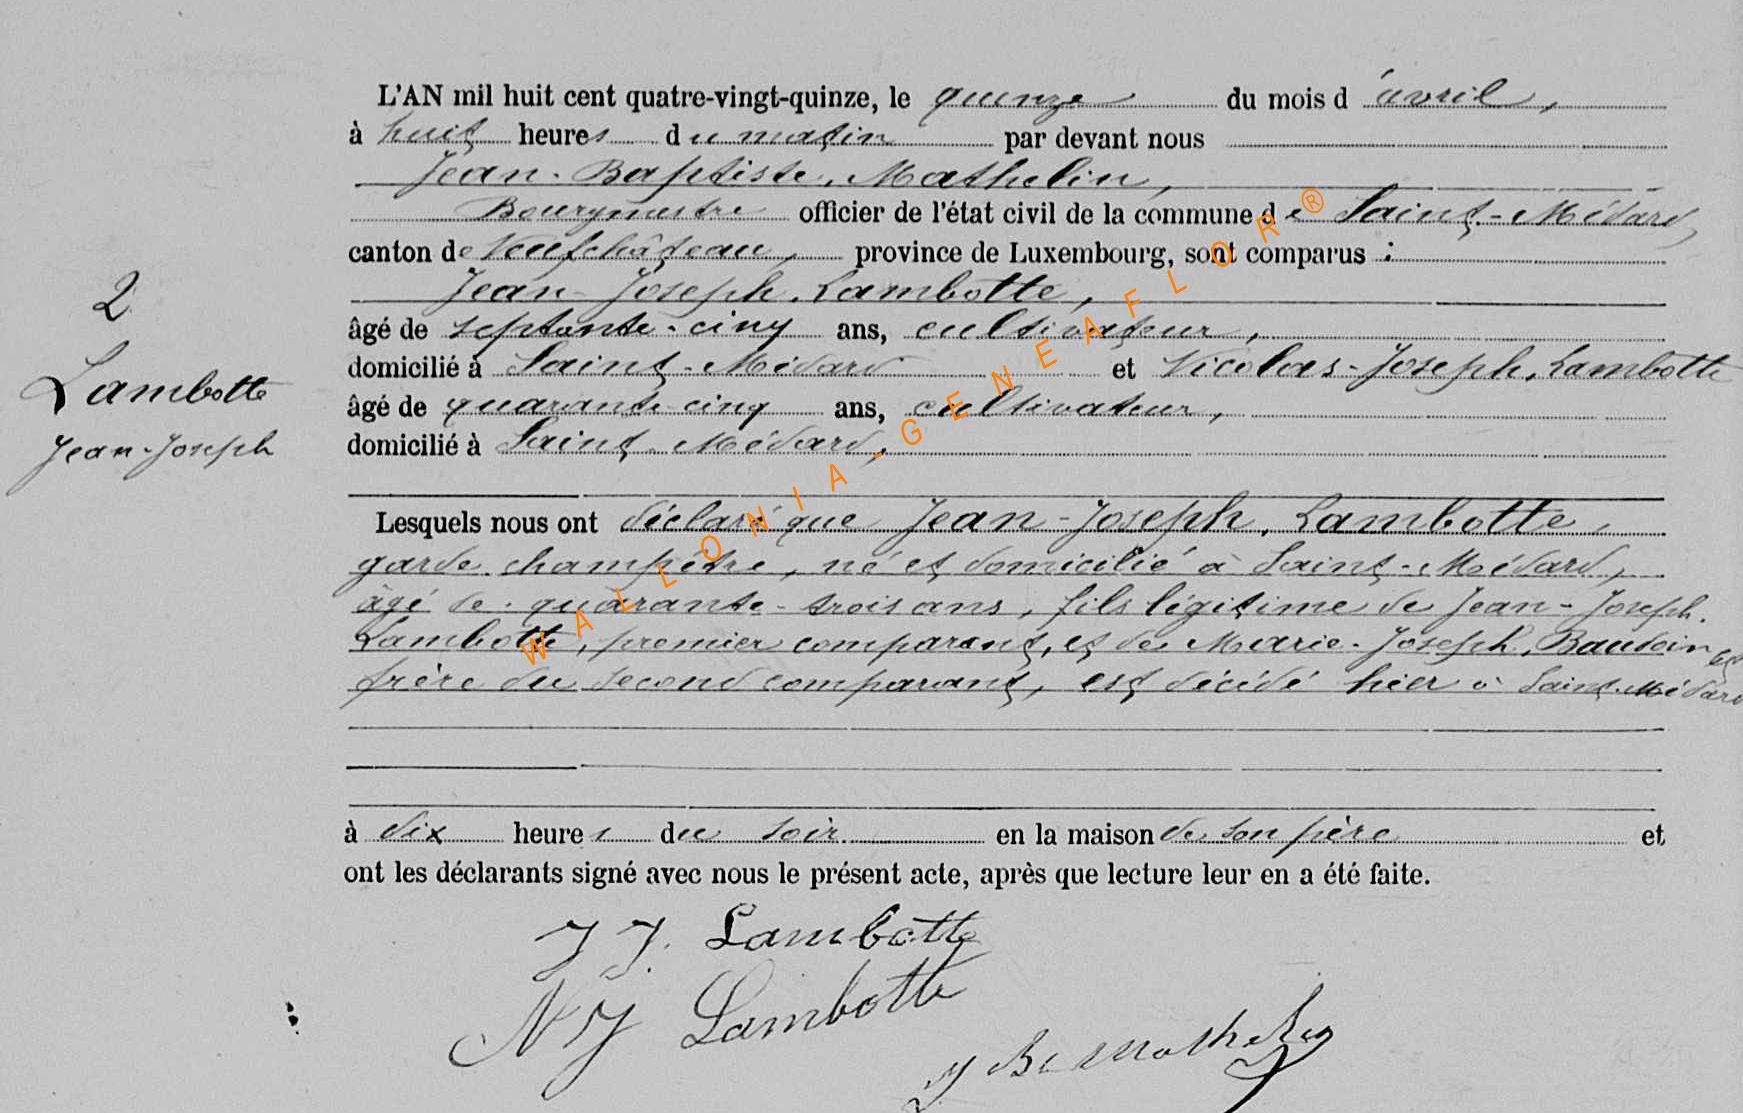 L'AN mil huit cent quatre-vingt-quinze, le quinze du mois d'avril,
à huit heures du matin par devant nous
Jean-Baptiste, Mathelin,
Bourgmestre officier de l'état civil de la commune de Saint-Médard,
canton de Neufchâteau, province de Luxembourg, sont comparus :
Jean-Joseph, Lambotte,
2
âgé de septante-cinq ans, cultivateur,
domicilié à Saint-Médard et Nicolas-Joseph, Lambotte
Lambotte
âgé de quarante-cinq ans, cultivateur,
Jean-Joseph
domicilié à Saint-Médard,
Lesquels nous ont déclaré que Jean-Joseph, Lambotte,
garde champêtre, né et domicilié à Saint-Médard,
âgé de quarante-trois ans, fils légitime de Jean-Joseph,
Lambotte, premier comparant, et de Marie-Joseph, Baudoin et
frère du second comparant, est décédé hier à Saint-Médard
à dix heures du soir en la maison de son père et
ont les déclarants signé avec nous le présent acte, après que lecture leur en a été faite.
J J. Lambotte
N J Lambotte
J Bte Mathelin
WALLONIA-GENEAFLOR®